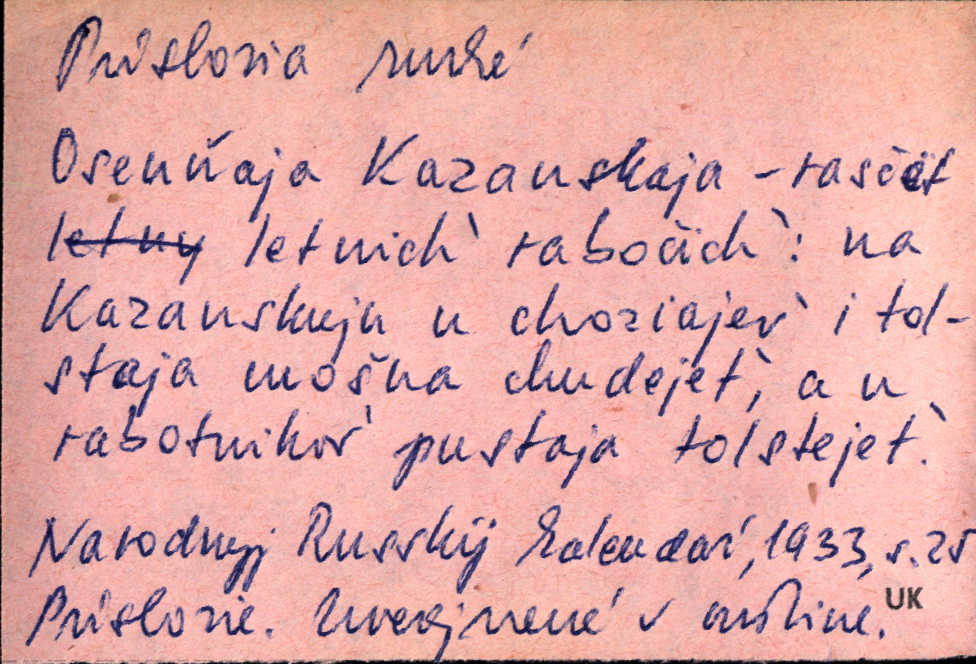 Príslovia ruské
Osenňaja Kazanskaja – rasčët
letny letnich` rabočich`: na
Kazanskuju u choziajev` i tol-
staja mošna chudejet`, a u
rabotnikov` pustaja tolstejet`.
Narodnyj Russkij Kalendaŕ, 1933, s. 25
Príslovie. Uverejnené v cudzine.
UK